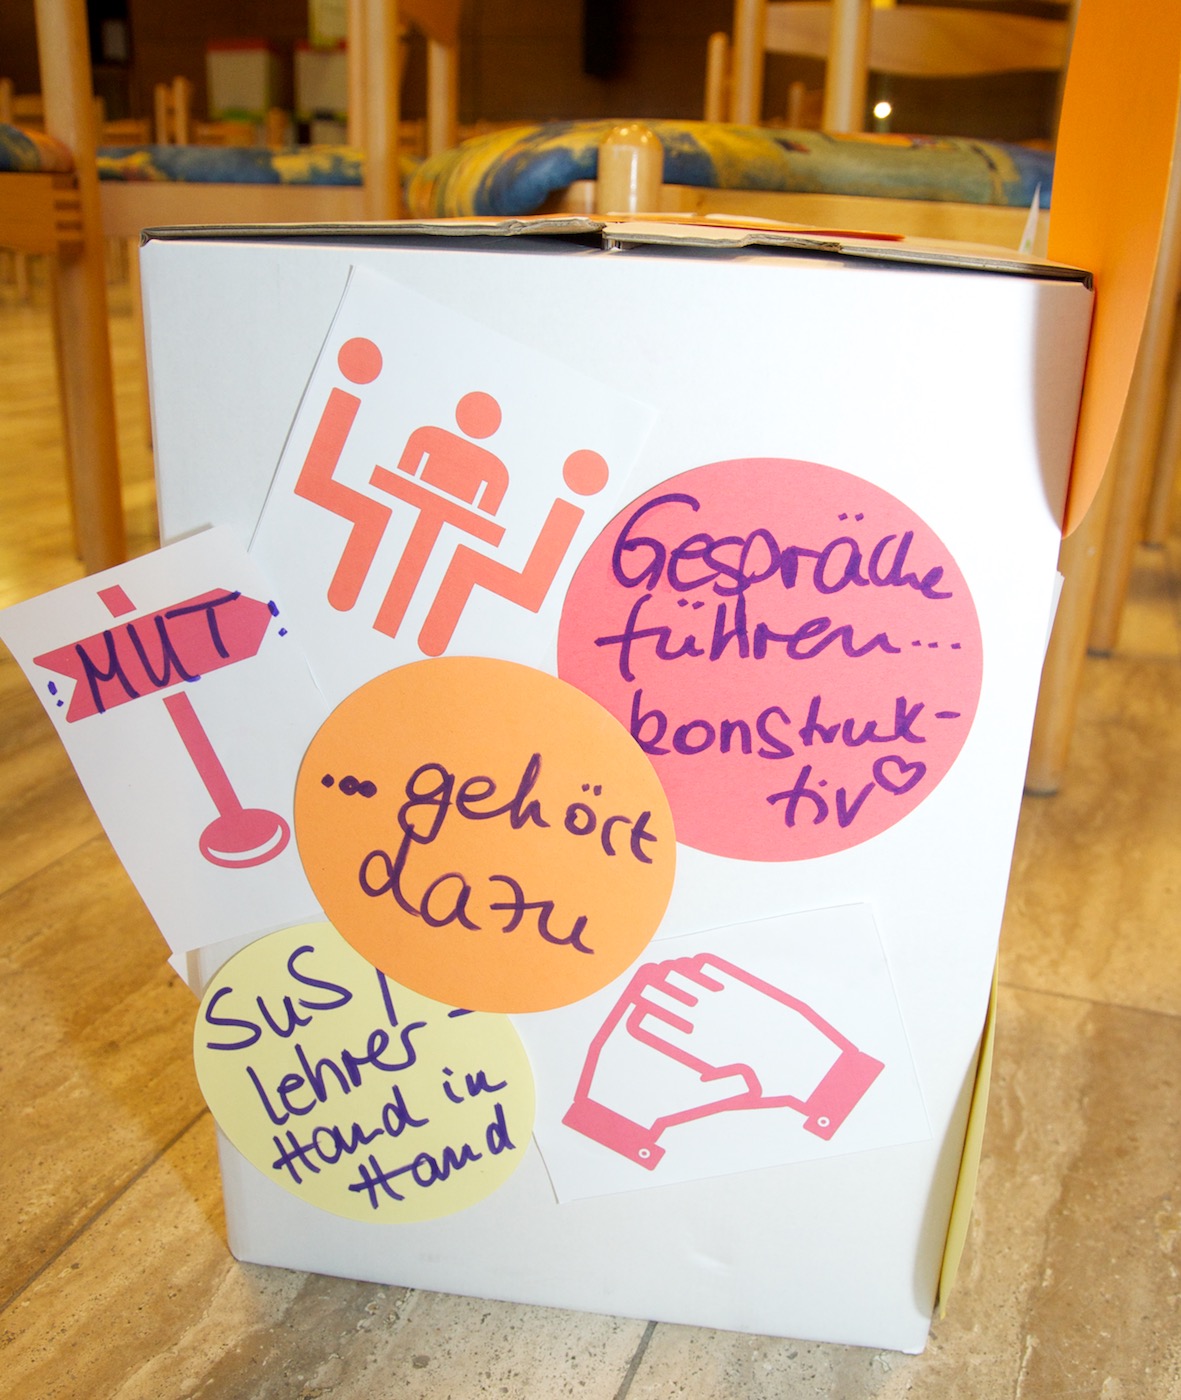 Gespräche
führen...
konstruk-
tiv♡
MUT
... gehört
dazu
SuS /
lehrer -
Hand in
Hand